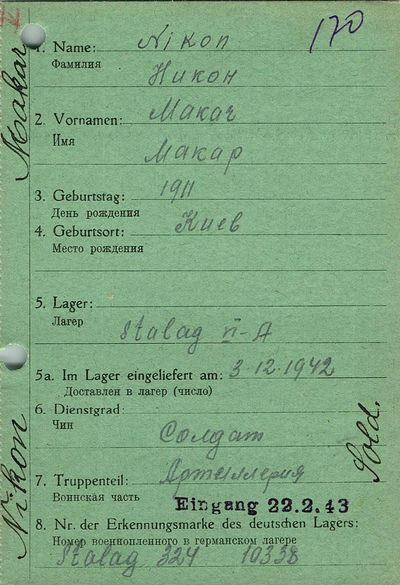 170
1. Name: Nikon
Фамилия
Никон
2. Vornamen: Макаr
Имя
Макар
3. Geburtstag: 1911
День рождения
4. Geburtsort: Киев
Место рождения
5. Lager:
Лагер
Stalag II-A
5a. Im Lager eingeliefert am: 3.12.1942
Доставлен в лагер (число)
6. Dienstgrad:
Чин
Солдат
7. Truppenteil: Артиллерия
Воинская часть
Eingang 22.2.43
8. Nr. der Erkennungsmarke des deutschen Lagers:
Номер военнопленного в германском лагере
Stalag 324 10338
Makar
Nikon
Sold.